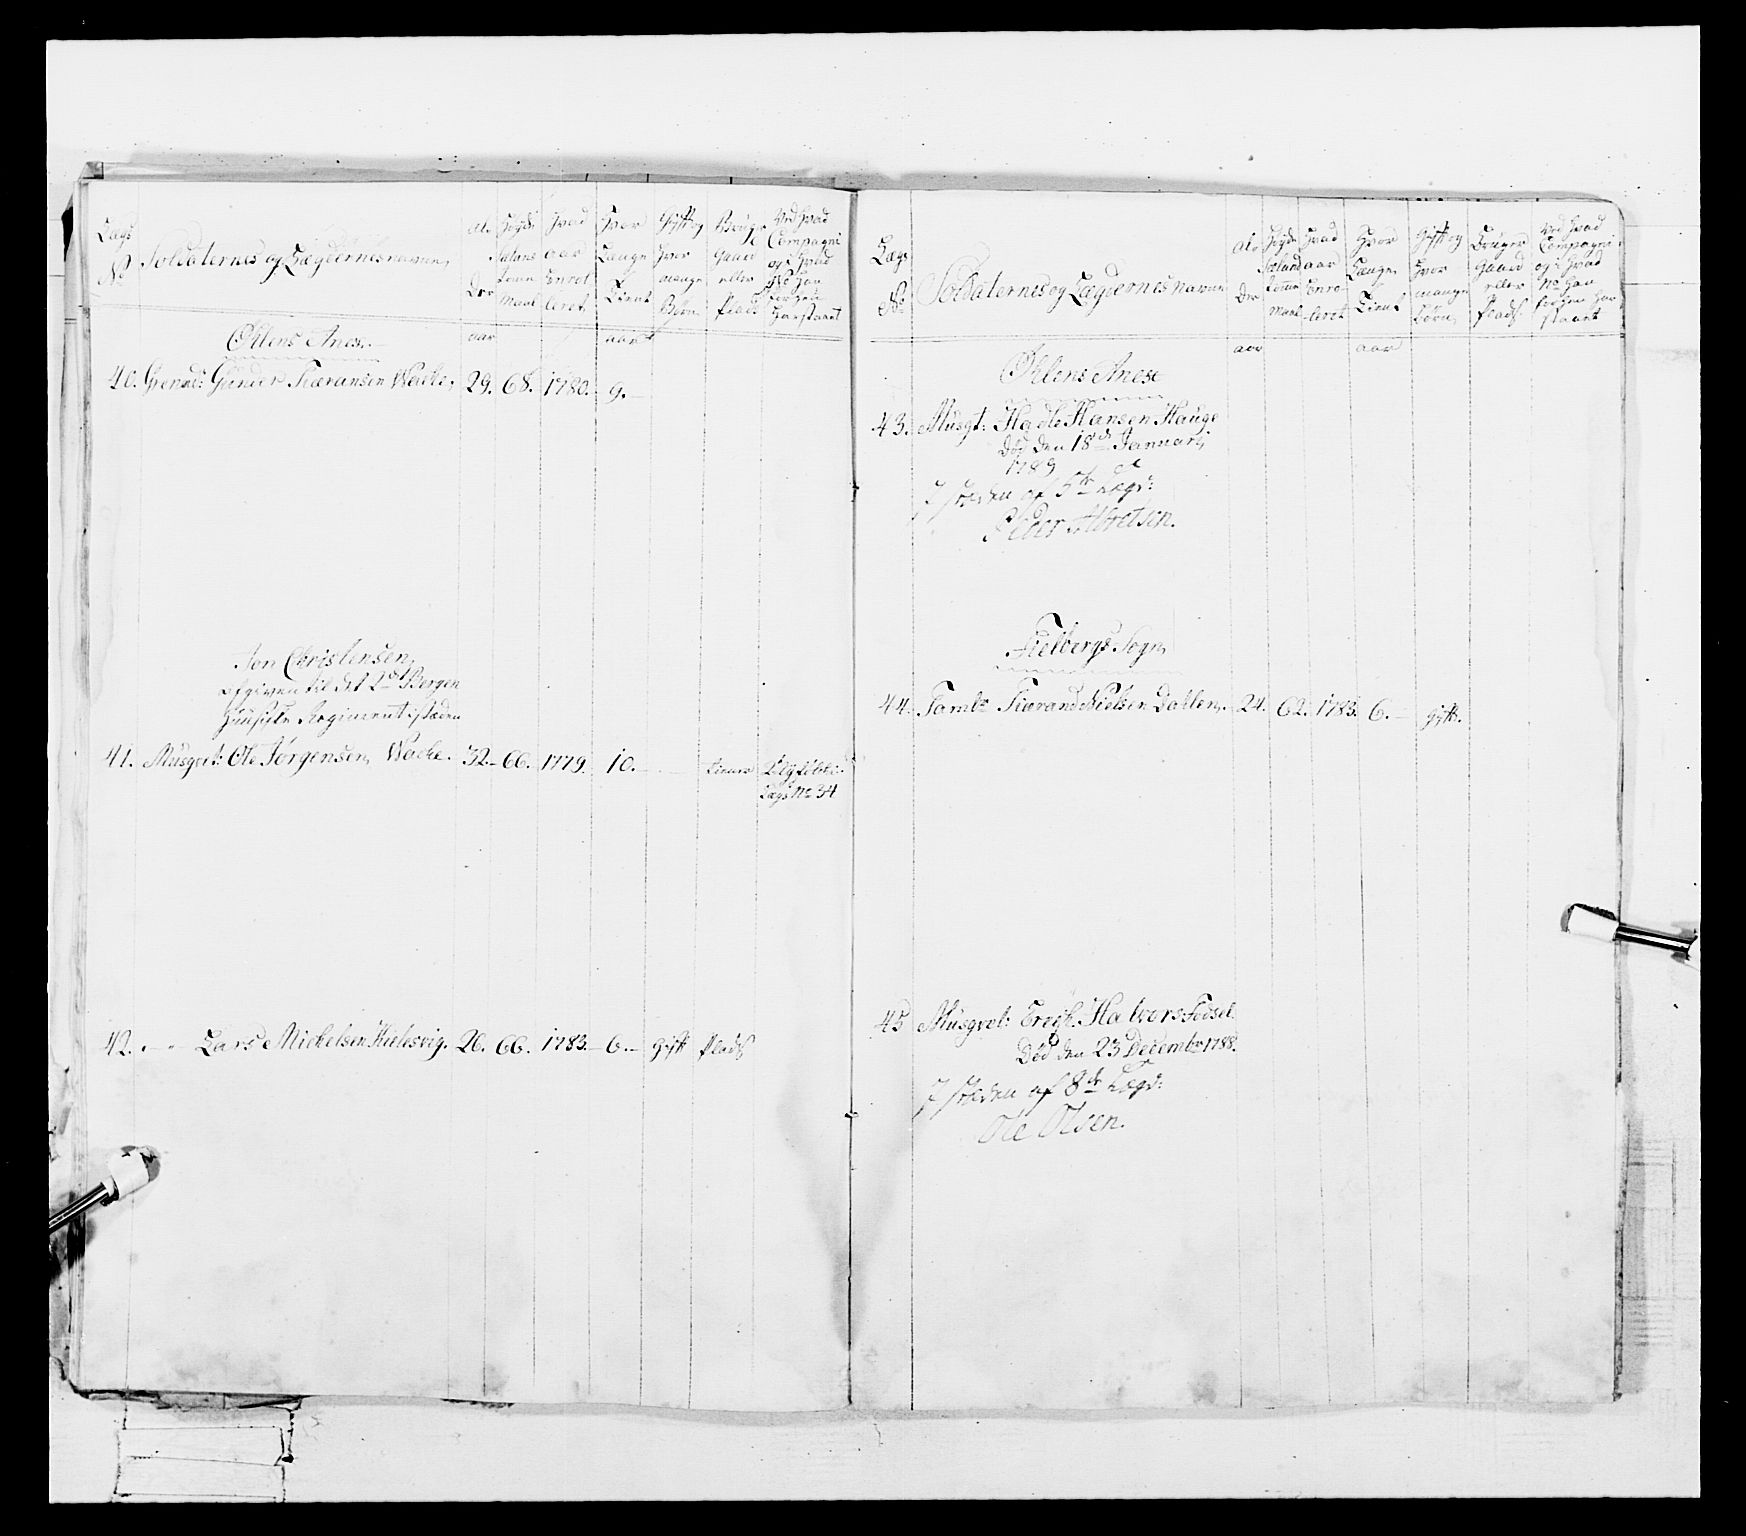 Lægs
No
Soldaternes og Lægdernes navne,
Al-
Der
Høyde
Maal
Hvad
aar
Enrol
leret
Hvor
Længe
Tient
Gift og
Hver
mange
Børn
Bruger
Gaard
eller
Plads
Ved hvad
Compagni
og i hvad
No han
forhen
Har staaet
aar
aar
Øhlens Anex.
40. Grenad: Gunder Tiæransen Wacke, 29. 68. 1780. 9.
Jon Christensen,
afgiven til det 2det Bergen
Huusiske Regiment istæden
41. Musqvet: Ole Jørgensen, Wacke. 32. 66. 1779. 10.
Lægs No 34
42. Lars Mickelsen 26. 66. 1783. 6. gift Plads
Lægs
No
Soldaternes og Lægdernes navne
Al-
Der
Høyde
Maal
Hvad
aar
Enro-
leret
Hvor
Længe
Tient
Gift og
Hvor
mange
børn,
Bruger
Gaard
eller
Plads
Ved hvad
Compagni
og i hvad
No han
forhen har
staaet
aar
aar
Øhlens Anex
43. Musqt: Hadle Hansen Hauge
Død den 18de Januari,
1789
I stæden af 5te Lægd:
Peder Albretsen.
Fielbergs Sogn,
44. Tambr Tiærand Nielsen 24. 62. 1783. 6. gift.
45 Musqvet: Halvors
Død den 23 Decembr 1788.
I stæden af 8de Lægd:
Ole Olsen.